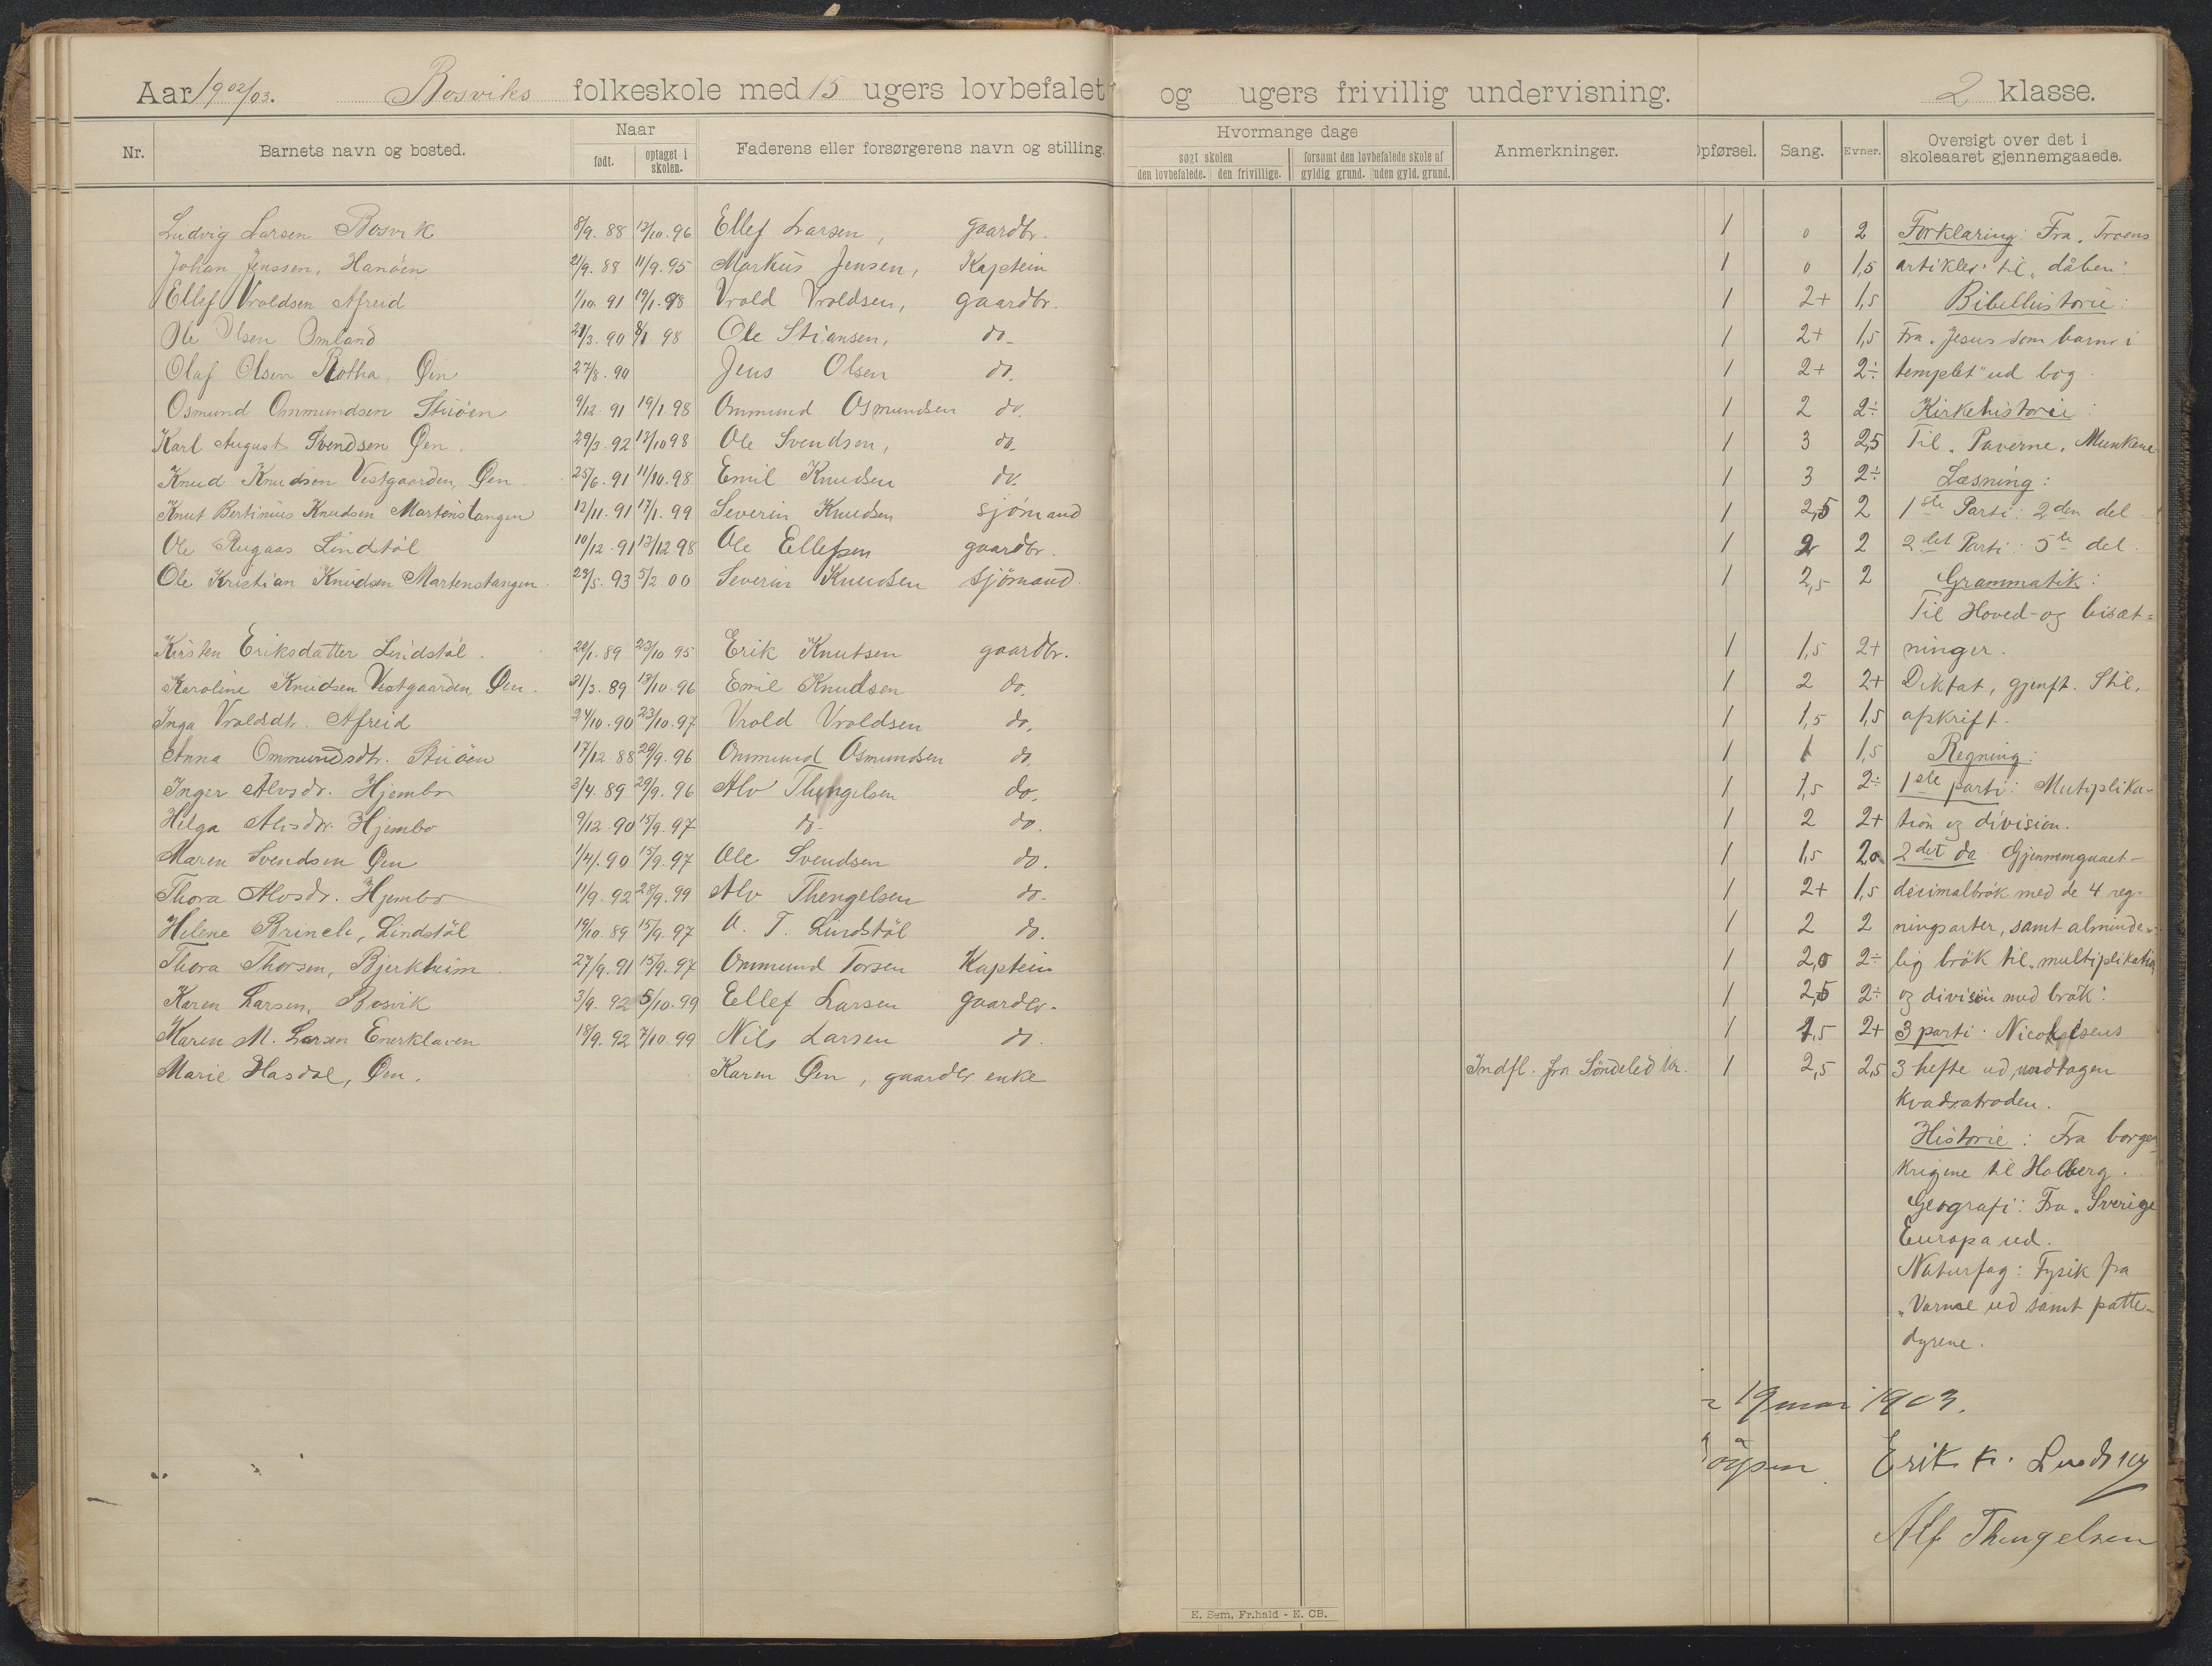 Aar 1902/03. Bosviks folkeskole med 15 ugers lovbefalet og ugers frivillig undervisning. 2 klasse.
Nr. Barnets navn og bosted. Naar født. optaget i skolen. Faderens eller forsørgerens navn og stilling. Hvormange dage søgt skolen den lovbefalede. den frivillige. forsømt den lovbefalede skole af gyldig grund. uden gyld. grund. Anmerkninger. Opførsel. Sang. Evner. Oversigt over det i skoleaaret gjennemgaaede.
Ludvig Larsen Bosvik 8/9. 88 12/10. 96 Ellef Larsen, gaardbr. 1 0 2 Forklaring: Fra "Troens
Johan Jenssen, Hanöen 21/9. 88 11/9. 95 Markus Jensen, Kaptein 1 0 1,5 artikler" til "dåben".
Ellef Vroldsen Afreid 1/10. 91 19/1. 98 Vrold Vroldsen, gaardbr. 1 2+ 1,5 Bibelhistorie:
Ole Olsen Omland 21/3. 90 8/1 98 Ole Stiansen, do 1 2+ 1,5 Fra "Jesus som barn i
Olaf Olsen Øen 27/8. 90 Jens Olsen do. 1 2+ 2÷ templet" ud bog.
Osmund Ommundsen Stuöen 9/12. 91 19/1. 98 Ommund Osmundsen do. 1 2 2÷ Kirkehistorie:
Karl August Svendsen Øen. 29/3. 92 12/10 98 Ole Svendsen, do. 1 3 2,5 Til "Paverne, Munkene
Knud Knudsen Vestgaarden, Øen. 25/6. 91 11/10. 98 Emil Knudsen do. 1 3 2÷ Læsning:
Knut Bertinius Knudsen Martenstangen 12/11. 91 17/1. 99 Severin Knudsen sjömand 1 2,5 2 1ste Parti: 2den del
Ole Rugaas Lindstöl 10/12. 91 13/12 98 Ole Ellefsen gaardbr. 1 2 2 2det Parti: 5te del.
Ole Kristian Knudsen Martenstangen. 23/5. 93 5/2. 00 Severin Knudsen sjömand. 1 2,5 2 Grammatik:
Til Hoved- og bisæt=
Kirsten Eriksdatter Lindstöl. 22/1. 89 23/10 95 Erik Knutsen gaardbr. 1 1,5 2+ ninger.
Karoline Knudsen Vestgaarden, Øen. 31/3. 89 13/10. 96 Emil Knudsen do. 1 2 2+ Diktat, gjenft. Stil,
Inga Vroldsdtr. Afreid 24/10. 90 23/10. 97 Vrold Vroldsen do. 1 1,5 1,5 afskrift.
Anna Ommundsdtr. Stuöen 17/12 88 29/9. 96 Ommund Osmundsen do. 1 1 1,5 Regning:
Inger Alvsdr. Hjembo 3/4. 89 29/9. 96 Alv Thengelsen do. 1 1,5 2÷ 1ste parti: Mutiplika-
Helga Alvsdr. Hjembo 9/12. 90 15/9. 97 do- do. 1 2 2+ tion og division.
Maren Svendsen Øen 1/4. 90 15/9. 97 Ole Svendsen do. 1 1,5 2,0 2det do Gjennemgaaet-
Thora Alvsdr. Hjembo 11/9. 92 28/9. 99 Alv Thengelsen do. 1 2+ 1,5 decimalbrök med de 4 reg-
Helene Brinch, Lindstöl 19/10. 89 15/9. 97 A. T. Lindstöl do. 1 2 2 ningsarter, samt alminde-
Thora Thorsen, Bjerkheim. 27/9. 91 15/9. 97 Ommund Torsen Kaptein 1 2,0 2÷ lig brök til "multiplikation
Karen Larsen, Bosvik 3/9. 92 5/10. 99 Ellef Larsen gaardbr. 1 2,5 2÷ og division med brök".
Karen M. Larsen Enerklaven 18/9. 92 7/10. 99 Nils Larsen do. 1 1,5 2+ 3 parti: Nicolaisens
Marie Hasdal, Øen. Karen Øen, gaardbr. enke Indfl. fra Söndeled kr. 1 2,5 2,5 3 hefte ud, undtagen
kvadratroden.
Historie: Fra borger
krigene til Holberg.
Geografi: Fra "Sverige
Europa ud.
Naturfag: Fysik fra
"Varme ud samt patte-
dyrene.
19 mai 1903.
Erik K. Lindstöl
Alf Thengelsen
E. Sem, Fr.hald - E. CB.